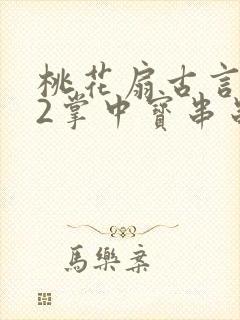 桃花扇古言
2掌中寶串
馬樂案